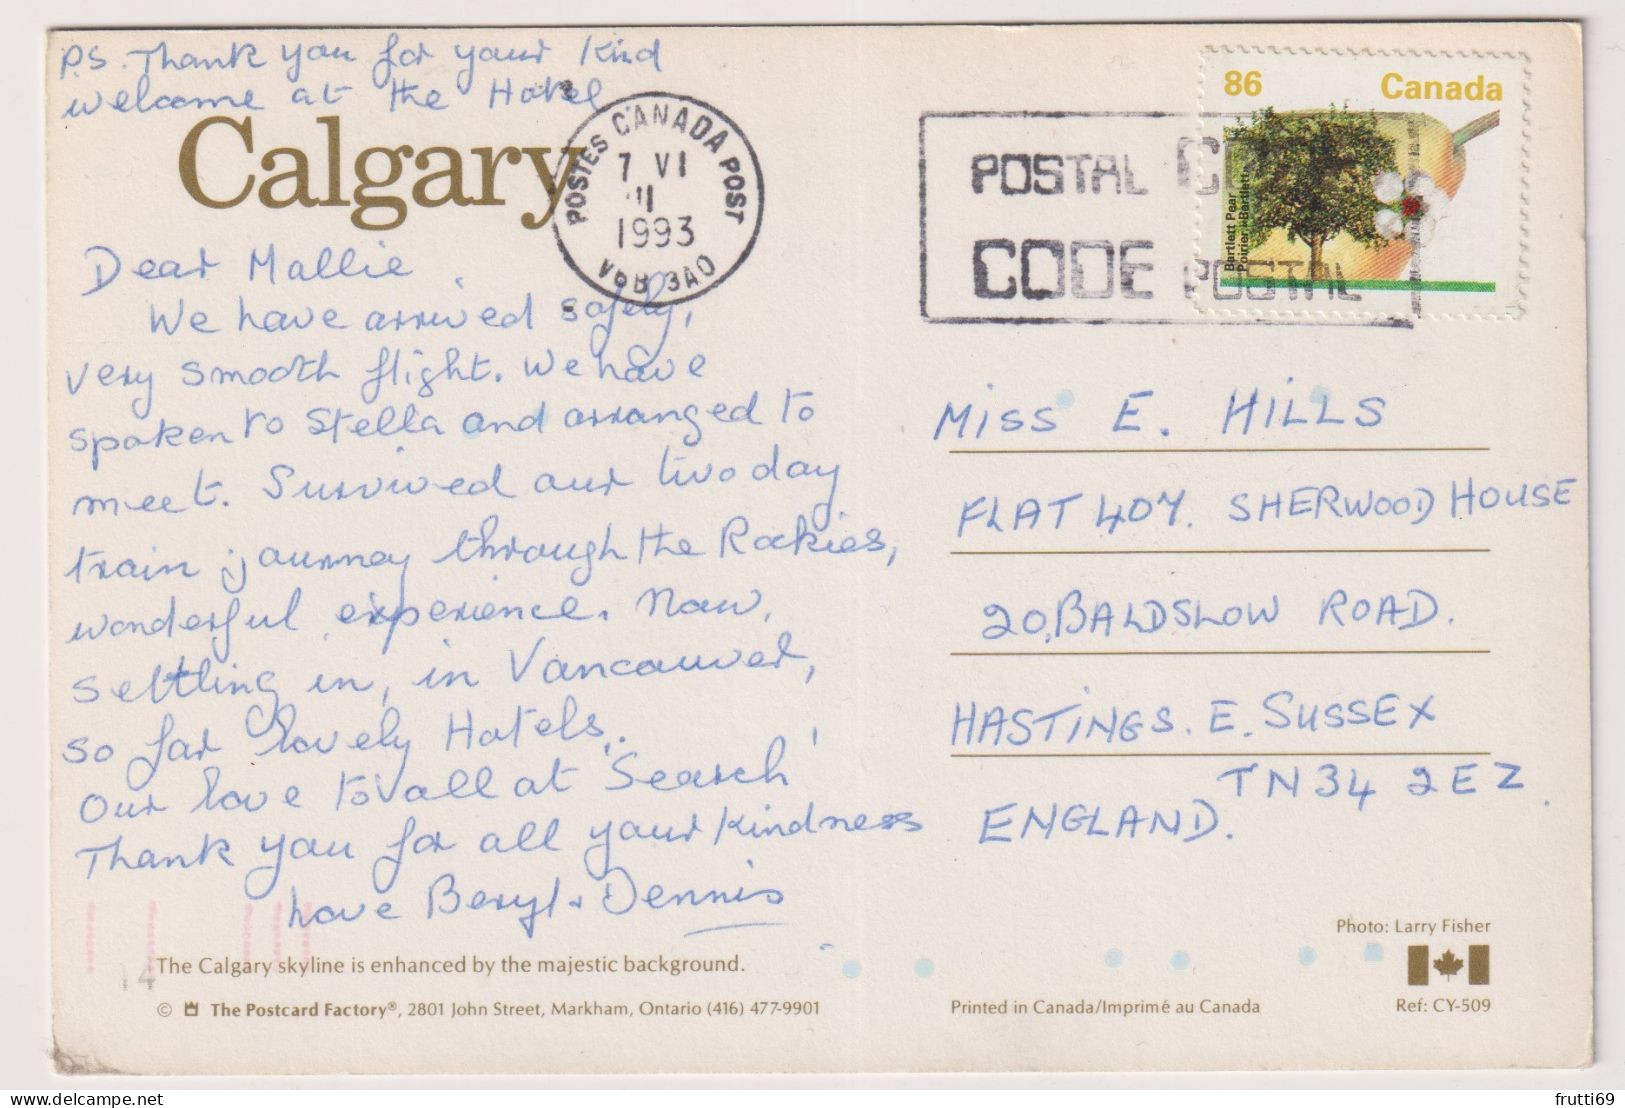 P.S. Thank you for your kind
welcome at the Hotel
Calgary
Dear Mallie,
We have arrived safely,
very smooth flight. We have
spoken to Stella and arranged to
meet. Survived our two day
train journey through the Rockies,
wonderful experience. Now,
settling in, in Vancouver,
so far lovely Hotels.
Our love to all at 'Search'
Thank you for all your kindness
Love Beryl & Dennis
The Calgary skyline is enhanced by the majestic background.
© The Postcard Factory®, 2801 John Street, Markham, Ontario (416) 477-9901
14
POSTES CANADA POST
7 VI
1993
V6B 3A0
POSTAL CODE
CODE POSTAL
86 Canada
Bartlett Pear
Poirier «Bartlett»
MISS E. HILLS
FLAT 407. SHERWOOD HOUSE
20, BALDSLOW ROAD.
HASTINGS. E. SUSSEX
TN34 2EZ.
ENGLAND.
Photo: Larry Fisher
Printed in Canada/Imprimé au Canada
Ref: CY-509
delcampe.net
frutti69